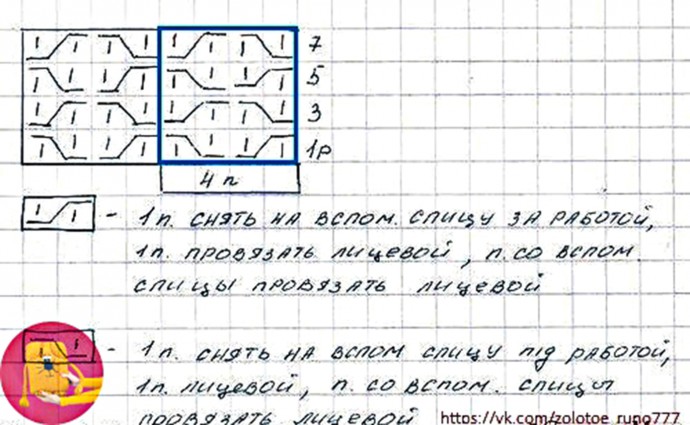 I I I I I I I I 7
I I I I I I I I 5
I I I I I I I I 3
I I I I I I I I 1р
4 п
I I - 1п. снять на вспом. спицу за работой,
1п. провязать лицевой, п. со вспом.
спицы провязать лицевой
I I - 1п. снять на вспом спицу під работой,
1п. лицевой, п. со вспом. спицы
провязать лицевой
https://vk.com/zolotoe_runo777